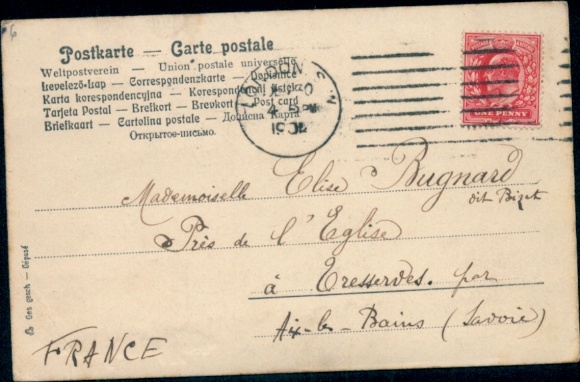 Postkarte — Carte postale
Weltpostverein — Union postale universelle
Levelező-Lap — Correspondenzkarte — Dopisnice
Karta korespondencyjna — Korespondenční lístek
Tarjeta Postal — Brefkort — Brevkort — Post card
Briefkaart — Cartolina postale — Дописна Карта
Открытое-письмо.
LONDON. N
4 PM
ONE PENNY
Mademoiselle Elise Bugnard
dit Bizet
Près de l'Eglise
à Tresserves. par
Aix-les-Bains (Savoie)
FRANCE
Ges gesch — Déposé